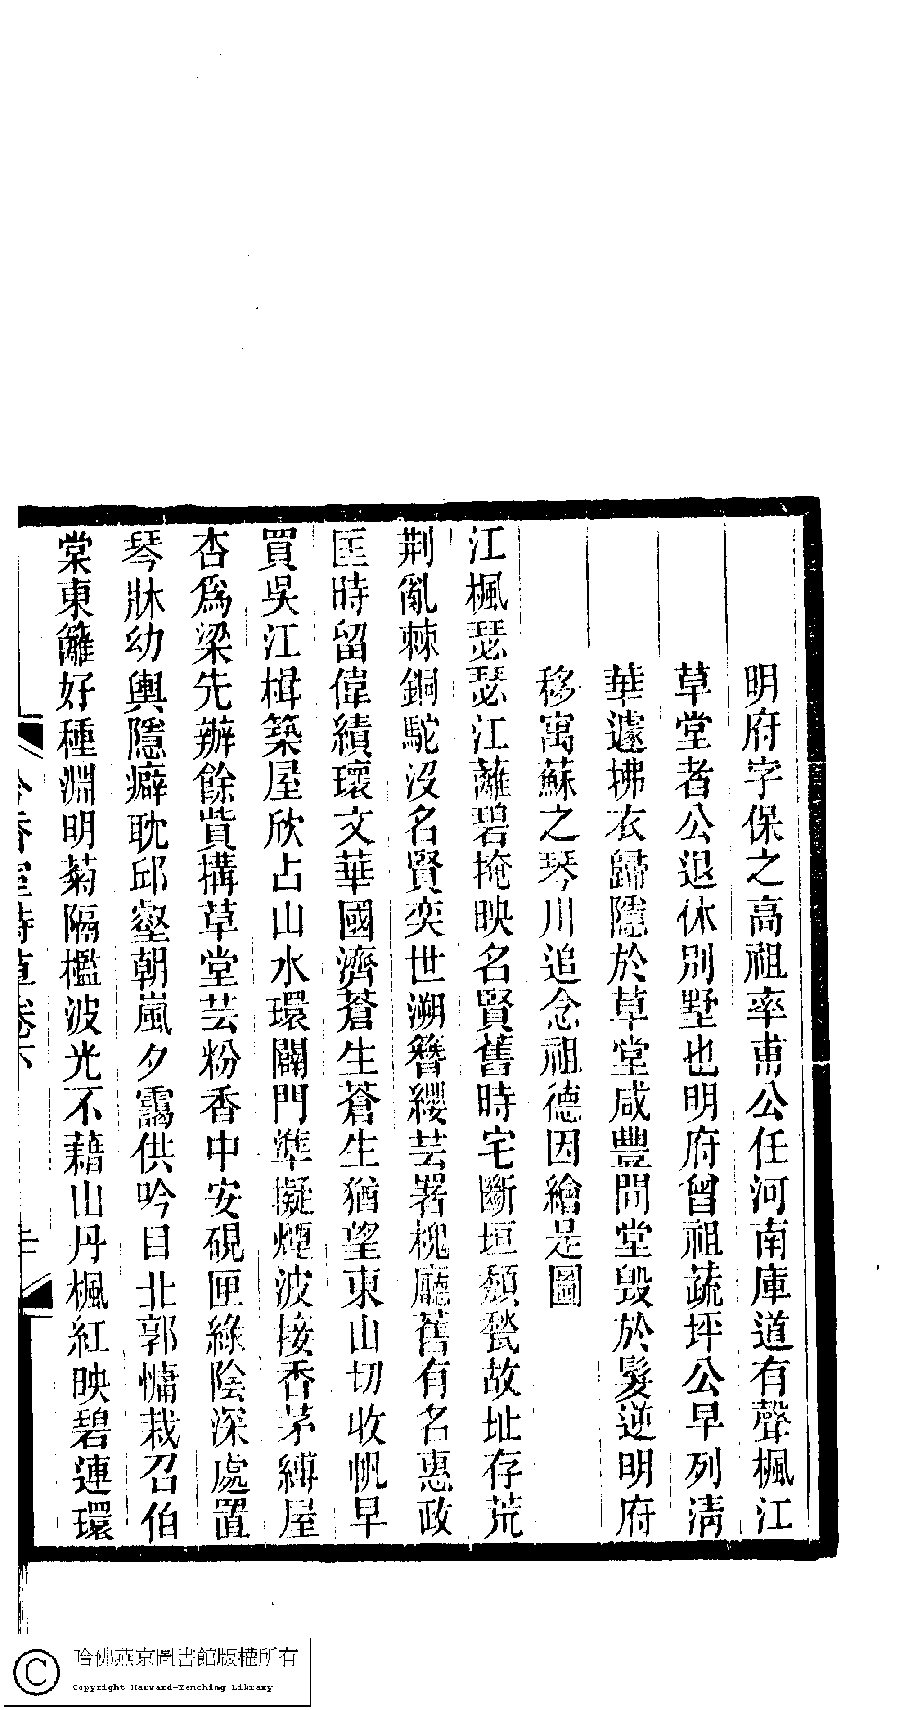 明府字保之高祖率甫公任河南庫道有聲楓江
草堂者公退休別墅也明府曾祖蔬坪公早列清
華遽拂衣歸隱於草堂咸豐間堂毀於髮逆明府
移寓蘇之琴川追念祖德因繪是圖
江楓瑟瑟江蘺碧掩映名賢舊時宅斷垣頹甃故址存荒
荆亂棘銅駝沒名賢奕世溯簪纓芸署槐廳舊有名惠政
匡時留偉績瓌文華國濟蒼生蒼生猶望東山切收帆早
買吳江楫築屋欣占山水環闢門準擬煙波接香茅縛屋
杏爲梁先辦餘貲搆草堂芸粉香中安硯匣綠陰深處置
琴牀幼輿隱癖耽邱壑朝嵐夕靄供吟目北郭慵栽召伯
棠東籬好種淵明菊隔檻波光不藉山丹楓紅映碧連環
冷香室詩草卷下
哈佛燕京圖書館版權所有
Copyright Harvard-Yenching Library